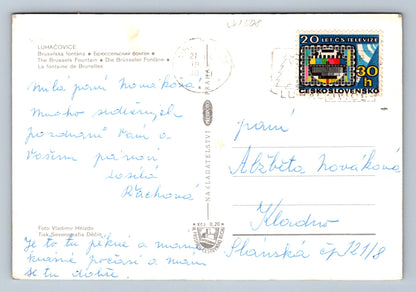 LUHAČOVICE
Bruselská fontána • Брюссельский фонтан •
The Brussels Fountain • Die Brüsseler Fontäne •
La fontaine de Bruxelles
Milá paní Nováková
Mnoho srdečných
pozdravů Vám a
Vašim
posílá
Foto Vladimír Hnízdo
Tisk Severografia Děčín
Je to tu pěkné a máme
krásné počasí a mám
se tu dobře.
NAKLADATELSTVÍ
PRAHA
Kčs 0,20
20 LET ČS TELEVIZE
30 h
ČESKOSLOVENSKO
paní
Alžběta Nováková
Kladno
Slánská čp 121/8